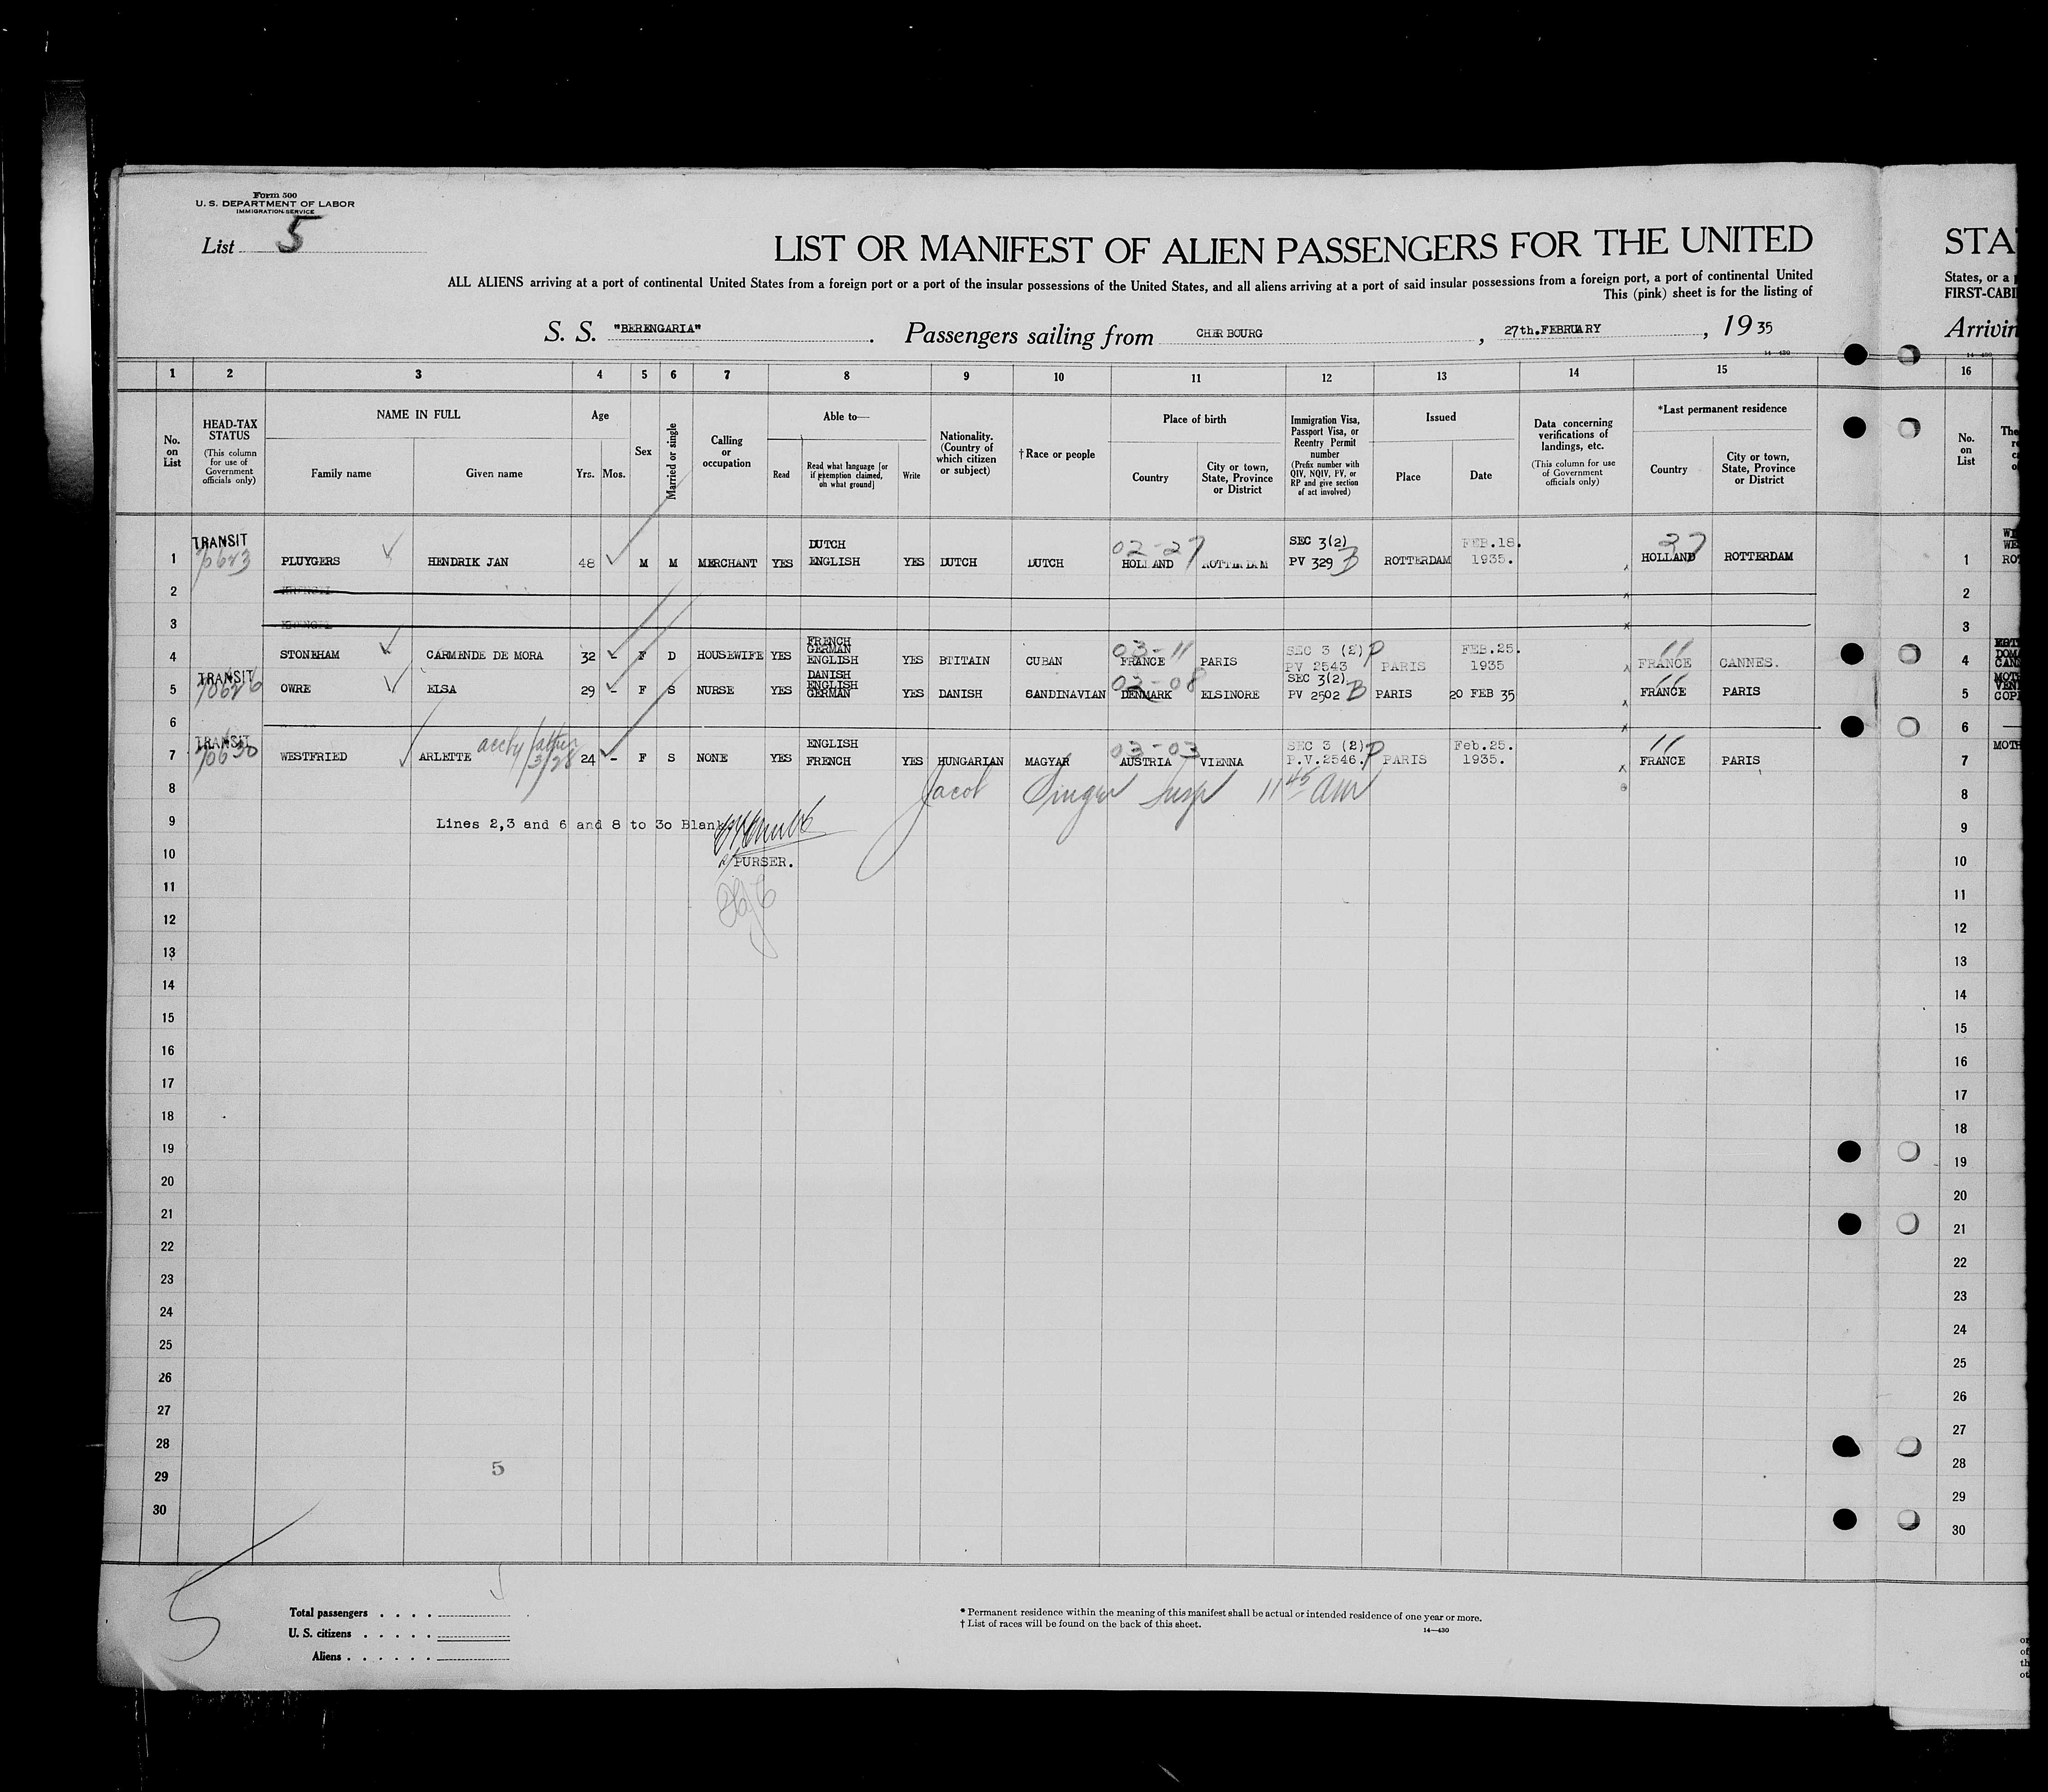 Form 500
U. S. DEPARTMENT OF LABOR
IMMIGRATION SERVICE
List 5
LIST OR MANIFEST OF ALIEN PASSENGERS FOR THE UNITED
STA
ALL ALIENS arriving at a port of continental United States from a foreign port or a port of the insular possessions of the United States, and all aliens arriving at a port of said insular possessions from a foreign port, a port of continental United
States, or a
This (pink) sheet is for the listing of
FIRST-CABI
S. S. "BERENGARIA". Passengers sailing from CHERBOURG, 27th.FEBRUARY, 19 35
Arrivin
14—430
1 2 3 4 5 6 7 8 9 10 11 12 13 14 15 16
No. on List
HEAD-TAX STATUS (This column for use of Government officials only)
NAME IN FULL
Family name Given name
Age
Yrs. Mos.
Sex
Married or single
Calling or occupation
Able to—
Read
Read what language [or if exemption claimed, on what ground]
Write
Nationality. (Country of which citizen or subject)
†Race or people
Place of birth
Country
City or town, State, Province or District
Immigration Visa, Passport Visa, or Reentry Permit number (Prefix number with QIV, NQIV, PV, or RP and give section of act involved)
Issued
Place Date
Data concerning verifications of landings, etc. (This column for use of Government officials only)
*Last permanent residence
Country
City or town, State, Province or District
No. on List
1 TRANSIT PLUYGERS HENDRIK JAN 48 M M MERCHANT YES DUTCH ENGLISH YES DUTCH DUTCH 02-27 HOLLAND ROTTERDAM SEC 3(2) PV 329 B ROTTERDAM FEB.18. 1935. 27 HOLLAND ROTTERDAM 1
2 2
3 3
4 STONEHAM CARMENDE DE MORA 32 - F D HOUSEWIFE YES FRENCH GERMAN ENGLISH YES BTITAIN CUBAN 03-11 FRANCE PARIS SEC 3 (2) P PV 2543 PARIS FEB.25. 1935 11 FRANCE CANNES. 4
5 TRANSIT 70626 OWRE ELSA 29 - F S NURSE YES DANISH ENGLISH GERMAN YES DANISH SANDINAVIAN 02-08 DENMARK ELSINORE SEC 3(2) PV 2502 B PARIS 20 FEB 35 11 FRANCE PARIS 5
6 6
7 TRANSIT 70630 WESTFRIED ARLETTE 3/28 24 - F S NONE YES ENGLISH FRENCH YES HUNGARIAN MAGYAR 03-03 AUSTRIA VIENNA SEC 3 (2) P P.V.2546. PARIS Feb.25. 1935. 11 FRANCE PARIS 7
8 Jacob Singer Insp 11 45 am 8
9 Lines 2,3 and 6 and 8 to 30 Blank 9
10 PURSER. 10
11 11
12 12
13 13
14 14
15 15
16 16
17 17
18 18
19 19
20 20
21 21
22 22
23 23
24 24
25 25
26 26
27 27
28 28
29 5 29
30 30
5
Total passengers . . . .
U. S. citizens . . . . .
Aliens . . . . . .
* Permanent residence within the meaning of this manifest shall be actual or intended residence of one year or more.
† List of races will be found on the back of this sheet.
14—430